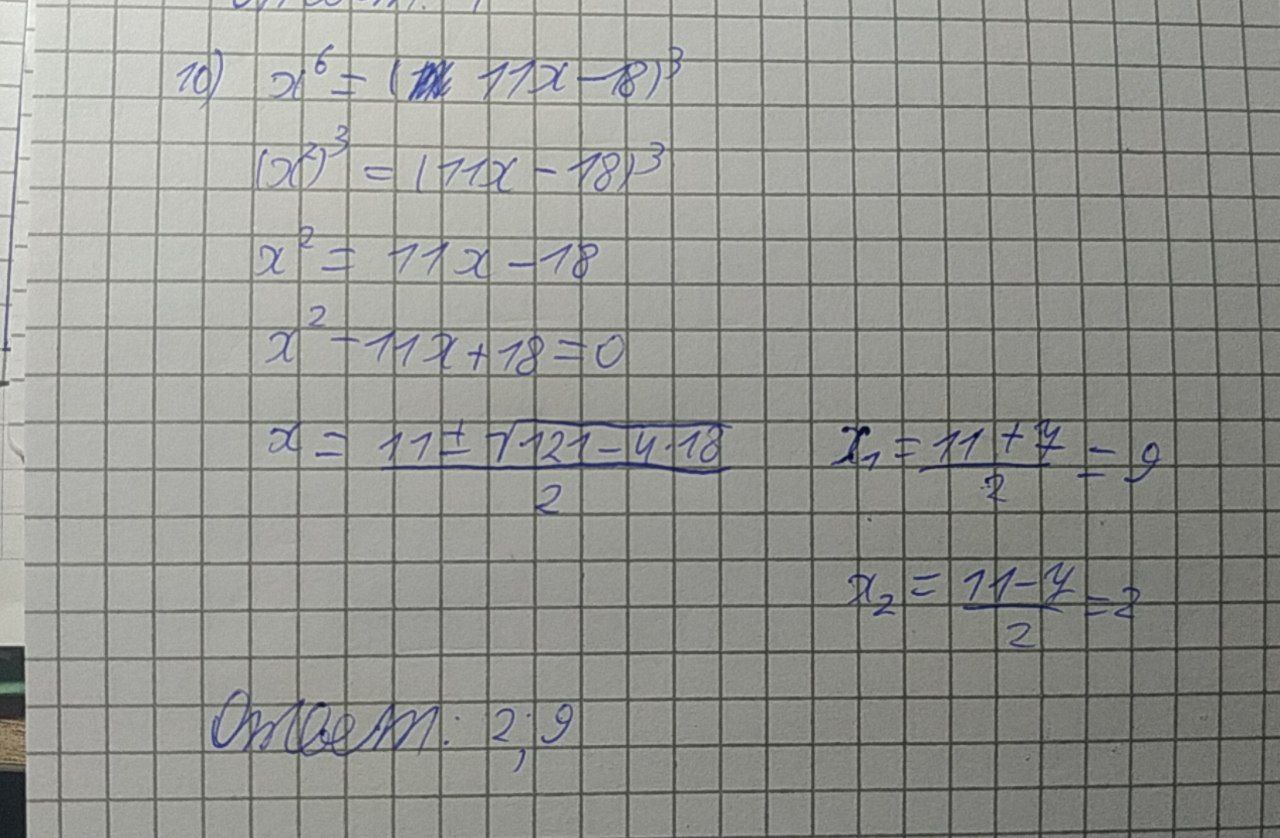 10) x⁶ = ( 11x – 18)³
(x²)³ = (11x – 18)³
x² = 11x – 18
x² – 11x + 18 = 0
x = (11 ± √(121 – 4·18))/2
x₁ = (11 + 7)/2 = 9
x₂ = (11 – 7)/2 = 2
Ответ: 2; 9